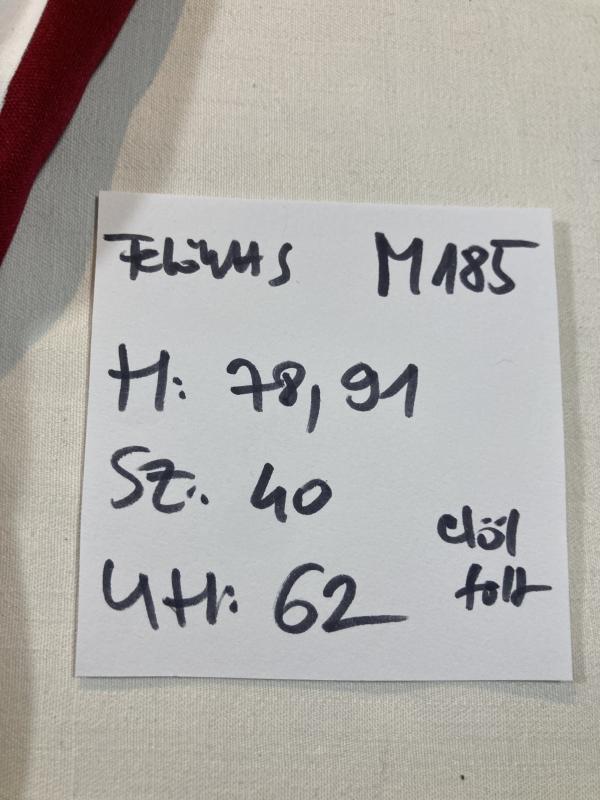 Felöltős M185
H: 78, 91
SZ: 40
UH: 62
elöl
folt